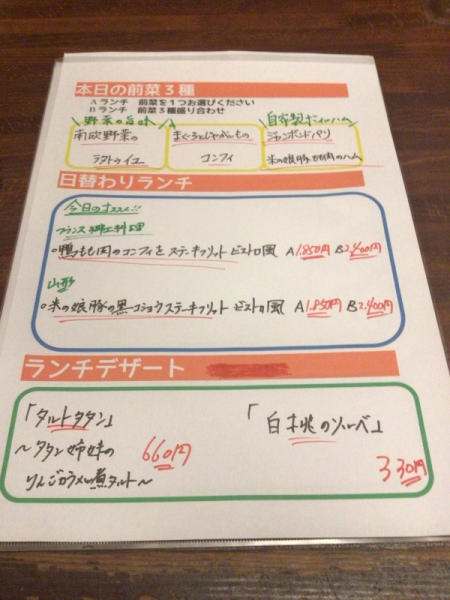 本日の前菜3種
Aランチ 前菜を1つお選びください
Bランチ 前菜3種盛り合わせ
野菜の旨味
自家製
南欧野菜の
ラタトゥイユ
まぐろとじゃがいもの
コンフィ
ジャンボンドパリ
米の娘豚のハム
日替わりランチ
今日のオススメ!!
フランス郷土料理
○鴨もも肉のコンフィとステーキフリット ビストロ風 A1.850円 B2.400円
山形
○米の娘豚の黒コショウステーキフリット ビストロ風 A1.850円 B2.400円
ランチデザート
「タルトタタン」
~タタン姉妹の
りんごカラメル煮タルト~
660円
「白桃のソルベ」
330円